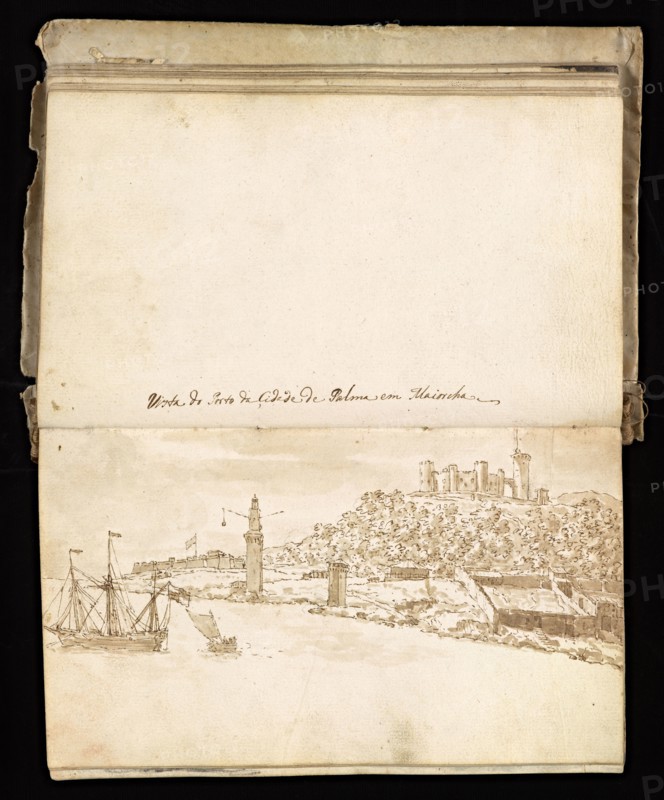 Vista do Porto da Çidade de Palma em Maiorcha